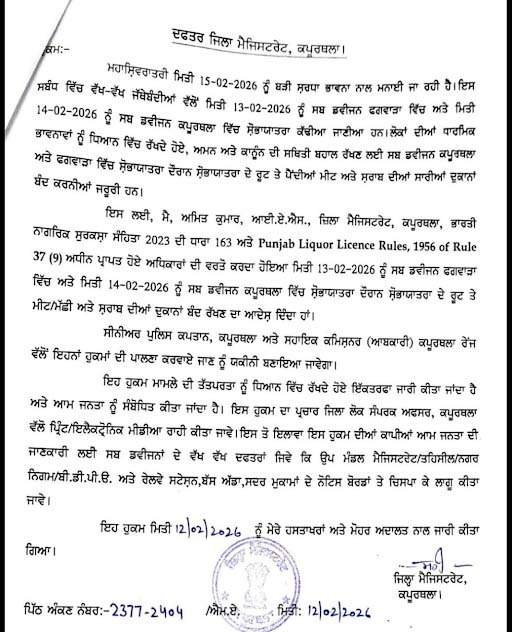 ਦਫਤਰ ਜਿਲਾ ਮੈਜਿਸਟਰੇਟ, ਕਪੂਰਥਲਾ।
ਕਮ:-
ਮਹਾਸ਼ਿਵਰਾਤਰੀ ਮਿਤੀ 15-02-2026 ਨੂੰ ਬੜੀ ਸ਼ਰਧਾ ਭਾਵਨਾ ਨਾਲ ਮਨਾਈ ਜਾ ਰਹੀ ਹੈ।ਇਸ
ਸਬੰਧ ਵਿੱਚ ਵੱਖ-ਵੱਖ ਜੱਥੇਬੰਦੀਆਂ ਵੱਲੋਂ ਮਿਤੀ 13-02-2026 ਨੂੰ ਸਬ ਡਵੀਜਨ ਫਗਵਾੜਾ ਵਿੱਚ ਅਤੇ ਮਿਤੀ
14-02-2026 ਨੂੰ ਸਬ ਡਵੀਜਨ ਕਪੂਰਥਲਾ ਵਿੱਚ ਸ਼ੋਭਾਯਾਤਰਾ ਕੱਢੀਆ ਜਾਣੀਆ ਹਨ।ਲੋਕਾਂ ਦੀਆਂ ਧਾਰਮਿਕ
ਭਾਵਨਾਵਾਂ ਨੂੰ ਧਿਆਨ ਵਿੱਚ ਰੱਖਦੇ ਹੋਏ, ਅਮਨ ਅਤੇ ਕਾਨੂੰਨ ਦੀ ਸਥਿਤੀ ਬਹਾਲ ਰੱਖਣ ਲਈ ਸਬ ਡਵੀਜਨ ਕਪੂਰਥਲਾ
ਅਤੇ ਫਗਵਾੜਾ ਵਿੱਚ ਸ਼ੋਭਾਯਾਤਰਾ ਦੌਰਾਨ ਸ਼ੋਭਾਯਾਤਰਾ ਦੇ ਰੂਟ ਤੇ ਪੈਂਦੀਆਂ ਮੀਟ ਅਤੇ ਸ਼ਰਾਬ ਦੀਆਂ ਸਾਰੀਆਂ ਦੁਕਾਨਾਂ
ਬੰਦ ਕਰਨੀਆਂ ਜਰੂਰੀ ਹਨ।
ਇਸ ਲਈ, ਮੈਂ, ਅਮਿਤ ਕੁਮਾਰ, ਆਈ.ਏ.ਐਸ., ਜ਼ਿਲਾ ਮੈਜਿਸਟਰੇਟ, ਕਪੂਰਥਲਾ, ਭਾਰਤੀ
ਨਾਗਰਿਕ ਸੁਰਕਸ਼ਾ ਸੰਹਿਤਾ 2023 ਦੀ ਧਾਰਾ 163 ਅਤੇ Punjab Liquor Licence Rules, 1956 of Rule
37 (9) ਅਧੀਨ ਪ੍ਰਾਪਤ ਹੋਏ ਅਧਿਕਾਰਾਂ ਦੀ ਵਰਤੋ ਕਰਦਾ ਹੋਇਆ ਮਿਤੀ 13-02-2026 ਨੂੰ ਸਬ ਡਵੀਜਨ ਫਗਵਾੜਾ
ਵਿੱਚ ਅਤੇ ਮਿਤੀ 14-02-2026 ਨੂੰ ਸਬ ਡਵੀਜਨ ਕਪੂਰਥਲਾ ਵਿੱਚ ਸ਼ੋਭਾਯਾਤਰਾ ਦੌਰਾਨ ਸ਼ੋਭਾਯਾਤਰਾ ਦੇ ਰੂਟ ਤੇ
ਮੀਟ/ਮੱਛੀ ਅਤੇ ਸ਼ਰਾਬ ਦੀਆਂ ਦੁਕਾਨਾਂ ਬੰਦ ਰੱਖਣ ਦਾ ਆਦੇਸ਼ ਦਿੰਦਾ ਹਾਂ।
ਸੀਨੀਅਰ ਪੁਲਿਸ ਕਪਤਾਨ, ਕਪੂਰਥਲਾ ਅਤੇ ਸਹਾਇਕ ਕਮਿਸ਼ਨਰ (ਆਬਕਾਰੀ) ਕਪੂਰਥਲਾ ਰੇਂਜ
ਵੱਲੋਂ ਇਹਨਾਂ ਹੁਕਮਾਂ ਦੀ ਪਾਲਣਾ ਕਰਵਾਏ ਜਾਣ ਨੂੰ ਯਕੀਨੀ ਬਣਾਇਆ ਜਾਵੇਗਾ।
ਇਹ ਹੁਕਮ ਮਾਮਲੇ ਦੀ ਤੱਤਪਰਤਾ ਨੂੰ ਧਿਆਨ ਵਿੱਚ ਰੱਖਦੇ ਹੋਏ ਇੱਕਤਰਫਾ ਜਾਰੀ ਕੀਤਾ ਜਾਂਦਾ ਹੈ
ਅਤੇ ਆਮ ਜਨਤਾ ਨੂੰ ਸੰਬੋਧਿਤ ਕੀਤਾ ਜਾਂਦਾ ਹੈ। ਇਸ ਹੁਕਮ ਦਾ ਪ੍ਰਚਾਰ ਜਿਲਾ ਲੋਕ ਸੰਪਰਕ ਅਫਸਰ, ਕਪੂਰਥਲਾ
ਵੱਲੋਂ ਪ੍ਰਿੰਟ/ਇਲੈਕਟ੍ਰੋਨਿਕ ਮੀਡੀਆ ਰਾਹੀ ਕੀਤਾ ਜਾਵੇ।ਇਸ ਤੋ ਇਲਾਵਾ ਇਸ ਹੁਕਮ ਦੀਆਂ ਕਾਪੀਆਂ ਆਮ ਜਨਤਾ ਦੀ
ਜਾਣਕਾਰੀ ਲਈ ਸਬ ਡਵੀਜਨਾਂ ਦੇ ਵੱਖ ਵੱਖ ਦਫਤਰਾਂ ਜਿਵੇ ਕਿ ਉਪ ਮੰਡਲ ਮੈਜਿਸਟਰੇਟ/ਤਹਿਸੀਲ/ਨਗਰ
ਨਿਗਮ/ਬੀ.ਡੀ.ਪੀ.ਓ. ਅਤੇ ਰੇਲਵੇ ਸਟੇਸ਼ਨ,ਬੱਸ ਅੱਡਾ,ਸਦਰ ਮੁਕਾਮਾਂ ਦੇ ਨੋਟਿਸ ਬੋਰਡਾਂ ਤੇ ਚਿਸਪਾ ਕੇ ਲਾਗੂ ਕੀਤਾ
ਜਾਵੇ।
ਇਹ ਹੁਕਮ ਮਿਤੀ 12/02/2026 ਨੂੰ ਮੇਰੇ ਹਸਤਾਖਰਾਂ ਅਤੇ ਮੋਹਰ ਅਦਾਲਤ ਨਾਲ ਜਾਰੀ ਕੀਤਾ
ਗਿਆ।
ਜਿਲ੍ਹਾ ਮੈਜਿਸਟਰੇਟ,
ਕਪੂਰਥਲਾ।
ਪਿੱਠ ਅੰਕਣ ਨੰਬਰ:-2377-2404 /ਐਮ.ਏ. ਮਿਤੀ: 12/02/2026